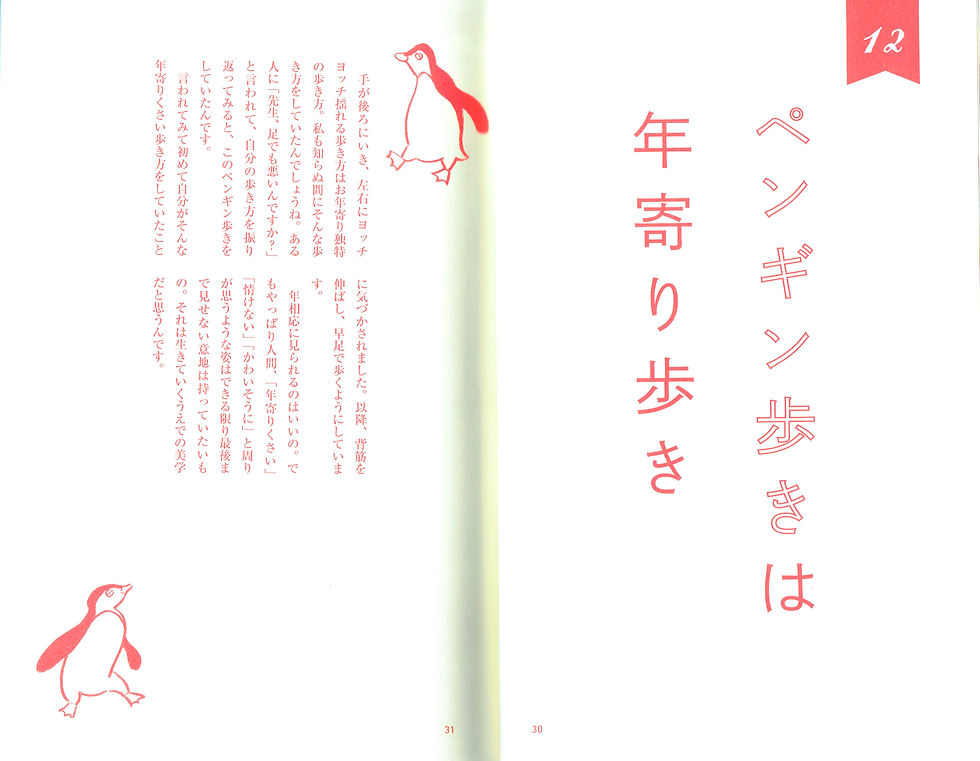 12
ペンギン歩きは
年寄り歩き
手が後ろにいき、左右にヨッチ
ヨッチ揺れる歩き方はお年寄り独特
の歩き方。私も知らぬ間にそんな歩
き方をしていたんでしょうね。ある
人に「先生、足でも悪いんですか?」
と言われて、自分の歩き方を振り
返ってみると、このペンギン歩きを
していたんです。
言われてみて初めて自分がそんな
年寄りくさい歩き方をしていたこと
に気づかされました。以降、背筋を
伸ばし、早足で歩くようにしていま
す。
年相応に見られるのはいいの。で
もやっぱり人間、「年寄りくさい」
「情けない」「かわいそうに」と周り
が思うような姿はできる限り最後ま
で見せない意地は持っていたいも
の。それは生きていくうえでの美学
だと思うんです。
30
31